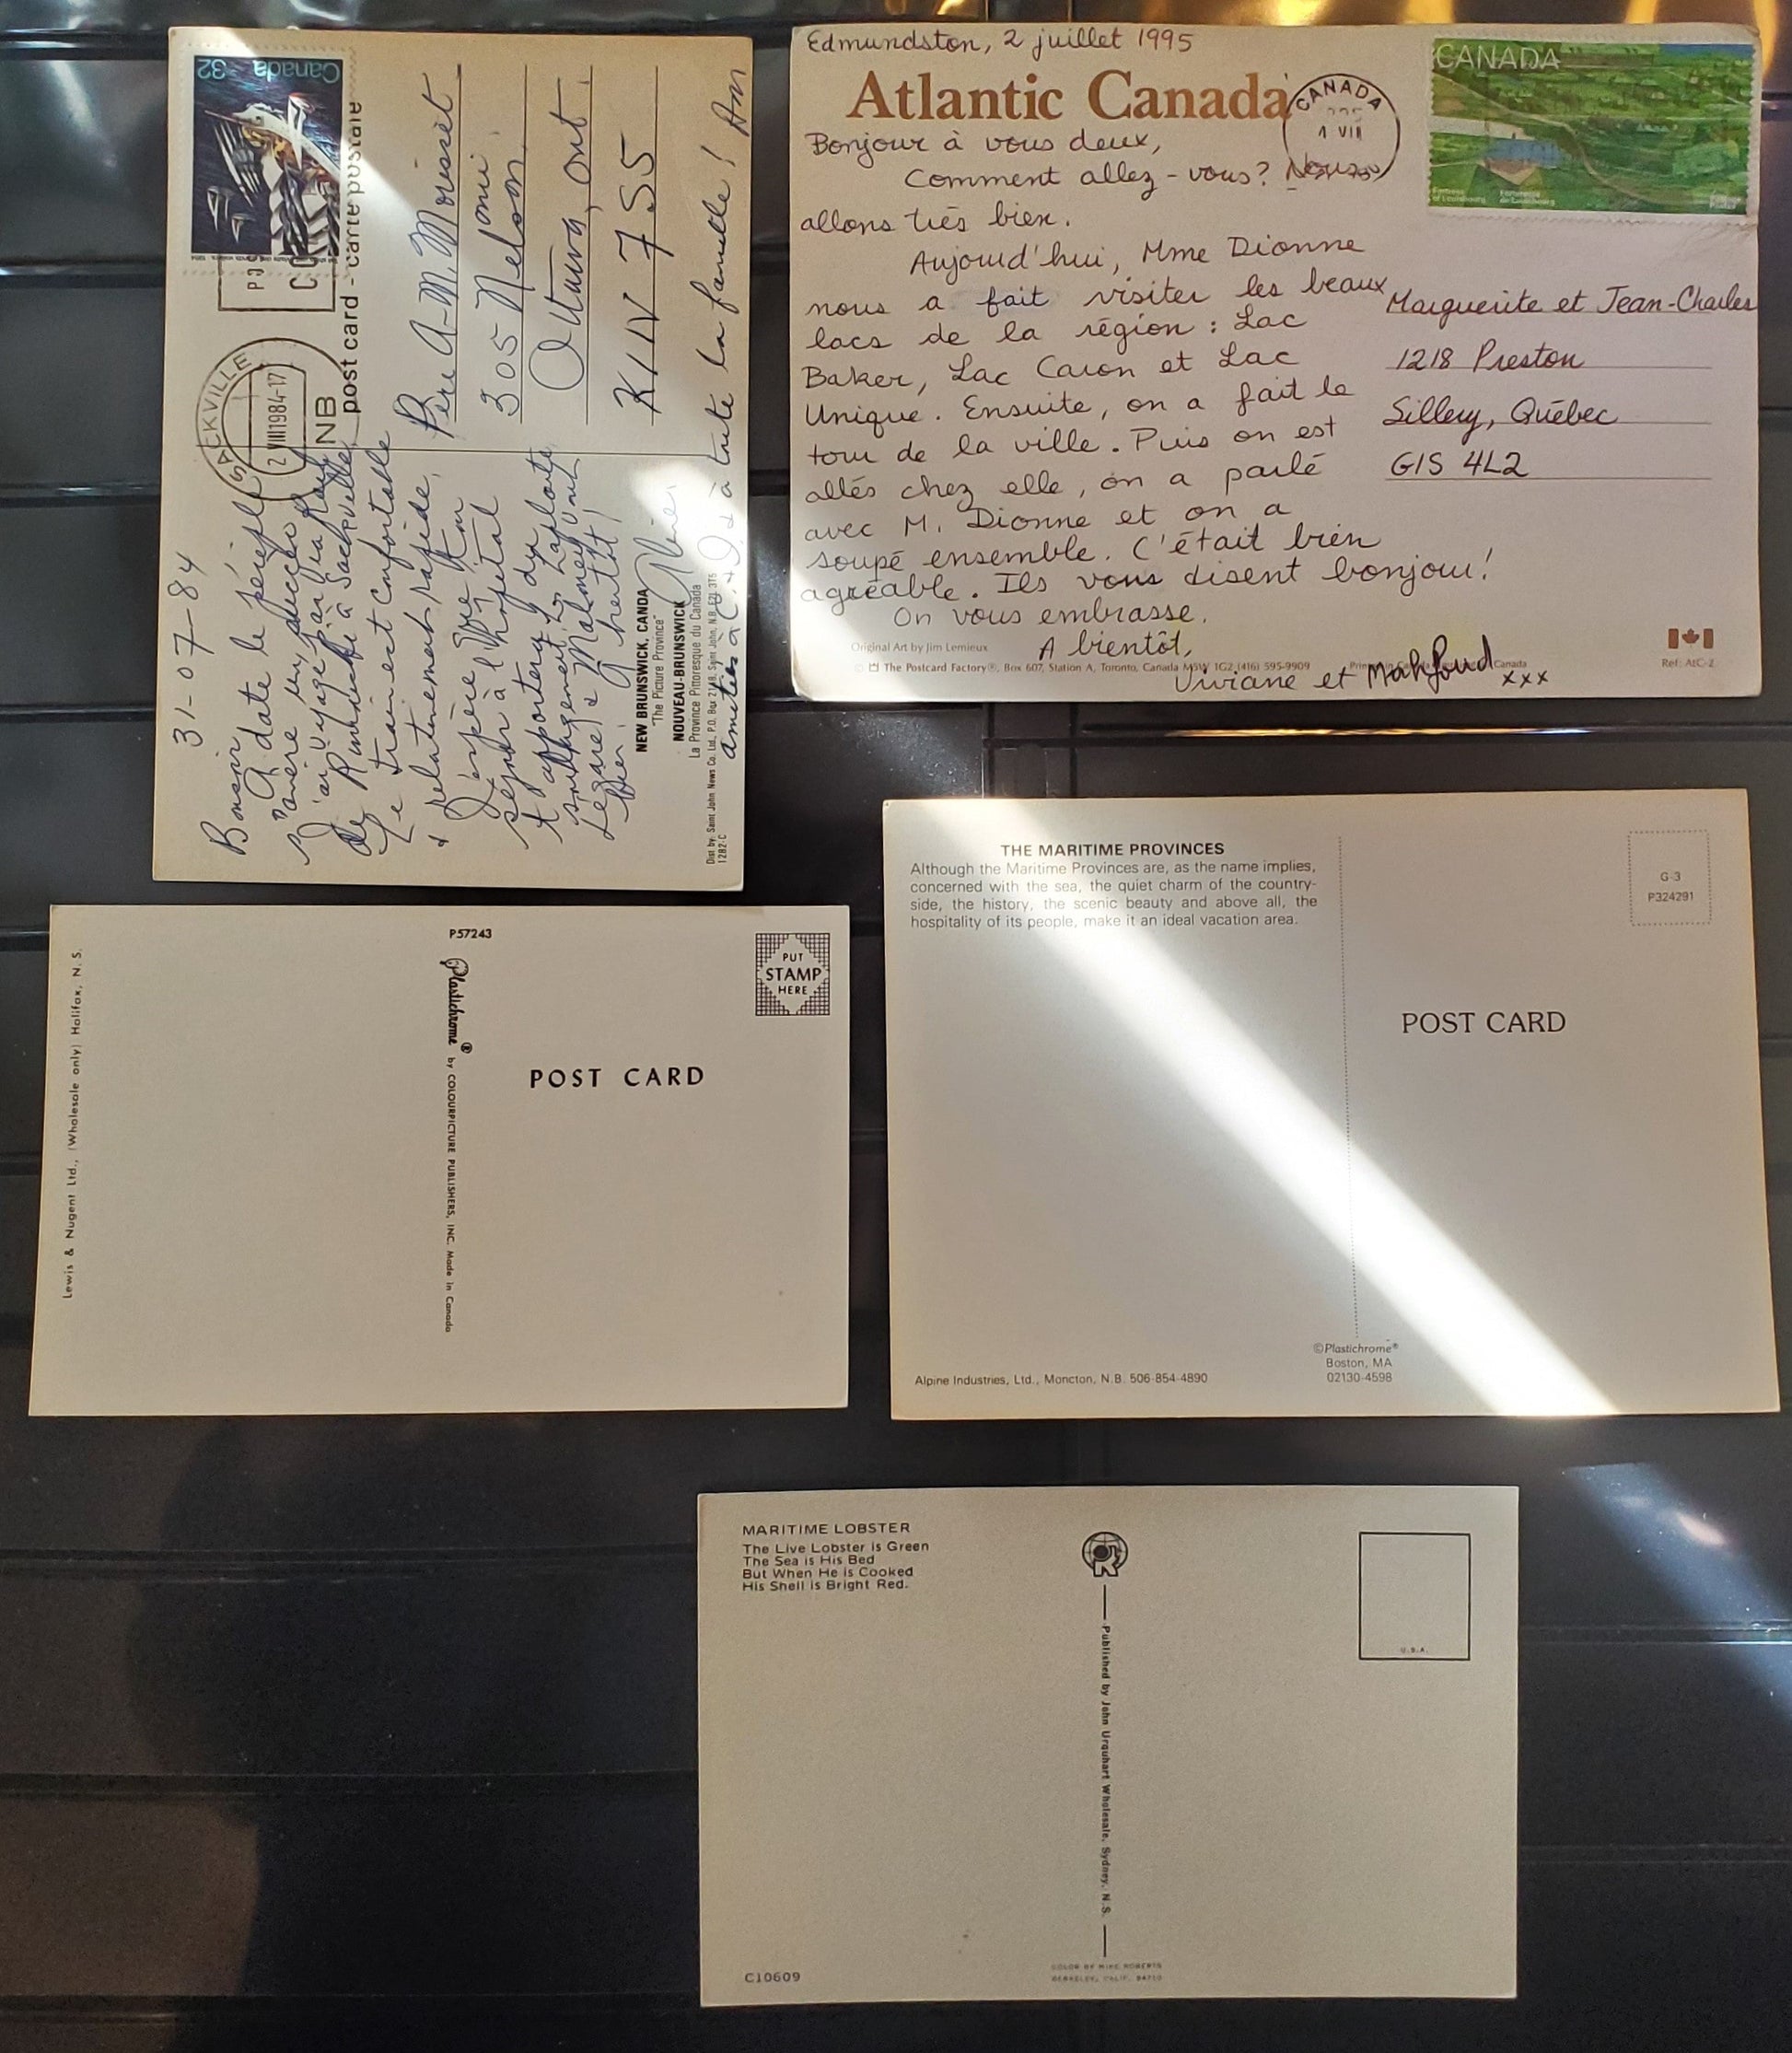 32 Canada
post card - carte postale
SACKVILLE
2 VIII 1984-17
NB
Père A-M. Morisset
305 Nelson
Ottawa, Ont.
K1N 7S5
31-07-84
Bonsoir
A date le périple
s'avère un succès
J'ai voyagé
de Rimouski à Sackville.
Le train est confortable
& relativement rapide.
J'espère que ton
séjour à l'hôpital
t'apportera du
soulagement.
bien.
à toute la famille!
NEW BRUNSWICK, CANADA
"The Picture Province"
NOUVEAU-BRUNSWICK
La Province Pittoresque du Canada
Dist by: Saint John News Co. Ltd., P.O. Box 2148, Saint John, N.B. E2L 3T5
1282-C
Edmundston, 2 juillet 1995
Atlantic Canada
CANADA
CANADA
Bonjour à vous deux,
Comment allez-vous? Nous
allons très bien.
Aujourd'hui, Mme Dionne
nous a fait visiter les beaux
lacs de la région : Lac
Baker, Lac Caron et Lac
Unique. Ensuite, on a fait le
tour de la ville. Puis on est
allés chez elle, on a parlé
avec M. Dionne et on a
soupé ensemble. C'était bien
agréable. Ils vous disent bonjour!
On vous embrasse.
A bientôt,
Viviane et Mahfoud xxx
Marguerite et Jean-Charles
1218 Preston
Sillery, Québec
G1S 4L2
Original Art by Jim Lemieux
© The Postcard Factory®, Box 607, Station A, Toronto, Canada M5W 1G2 (416) 595-9909
Printed in Canada
Ref: AtC-Z
P57243
PUT
STAMP
HERE
POST CARD
Plastichrome® by COLOURPICTURE PUBLISHERS, INC. Made in Canada
Lewis & Nugent Ltd., (Wholesale only) Halifax, N. S.
THE MARITIME PROVINCES
Although the Maritime Provinces are, as the name implies,
concerned with the sea, the quiet charm of the country-
side, the history, the scenic beauty and above all, the
hospitality of its people, make it an ideal vacation area.
G-3
P324291
POST CARD
©Plastichrome®
Boston, MA
02130-4598
Alpine Industries, Ltd., Moncton, N.B. 506-854-4890
MARITIME LOBSTER
The Live Lobster is Green
The Sea is His Bed
But When He is Cooked
His Shell is Bright Red.
Published by John Urquhart Wholesale, Sydney, N.S.
U.S.A.
C10609
COLOR BY MIKE ROBERTS
BERKELEY, CALIF. 94710